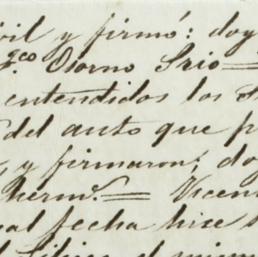 y firmó: doy
gco Osorno Srio
entendidos los
del auto que p
y firmaron; do
herm.o = Vicen
al fecha hice